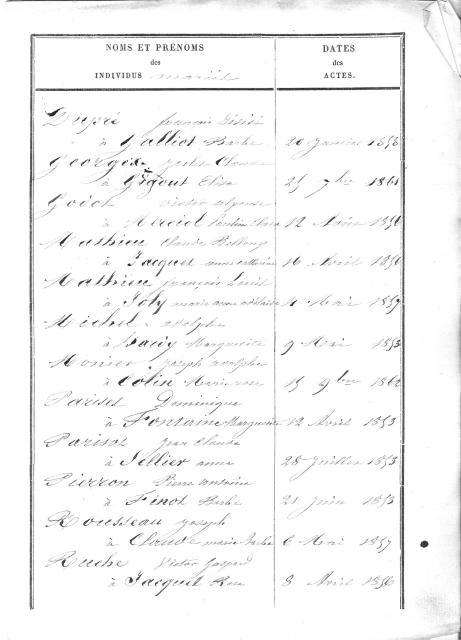 NOMS ET PRÉNOMS
des
INDIVIDUS mariés
DATES
des
ACTES.
Dupré françois
à Galliot Barbe 20 Janvier 1858
Georgel Claude
à Gigout Elise 25 7bre 1861
Victor alphonse
à 12 1856
Mathieu Claude
à Jacquel anne catherine 16 Avril 1856
Mathieu françois Louis
à Joly marie anne adélaide 4 Mai 1857
Michel adolphe
à Marguerite 9 Mai 1853
Monier Joseph adolphe
à Colin Marie rose 15 9bre 1862
Pariset Dominique
à Fontaine Marguerite 12 Avril 1853
Parisot Jean Claude
à Tellier anne 28 Juillet 1853
Pierron Pierre antoine
à Finot Barbe 21 Juin 1853
Rousseau Joseph
à Claude marie Barbe 6 Mai 1857
Ruche Victor Gaspard
à Jacquel Rose 8 Avril 1856